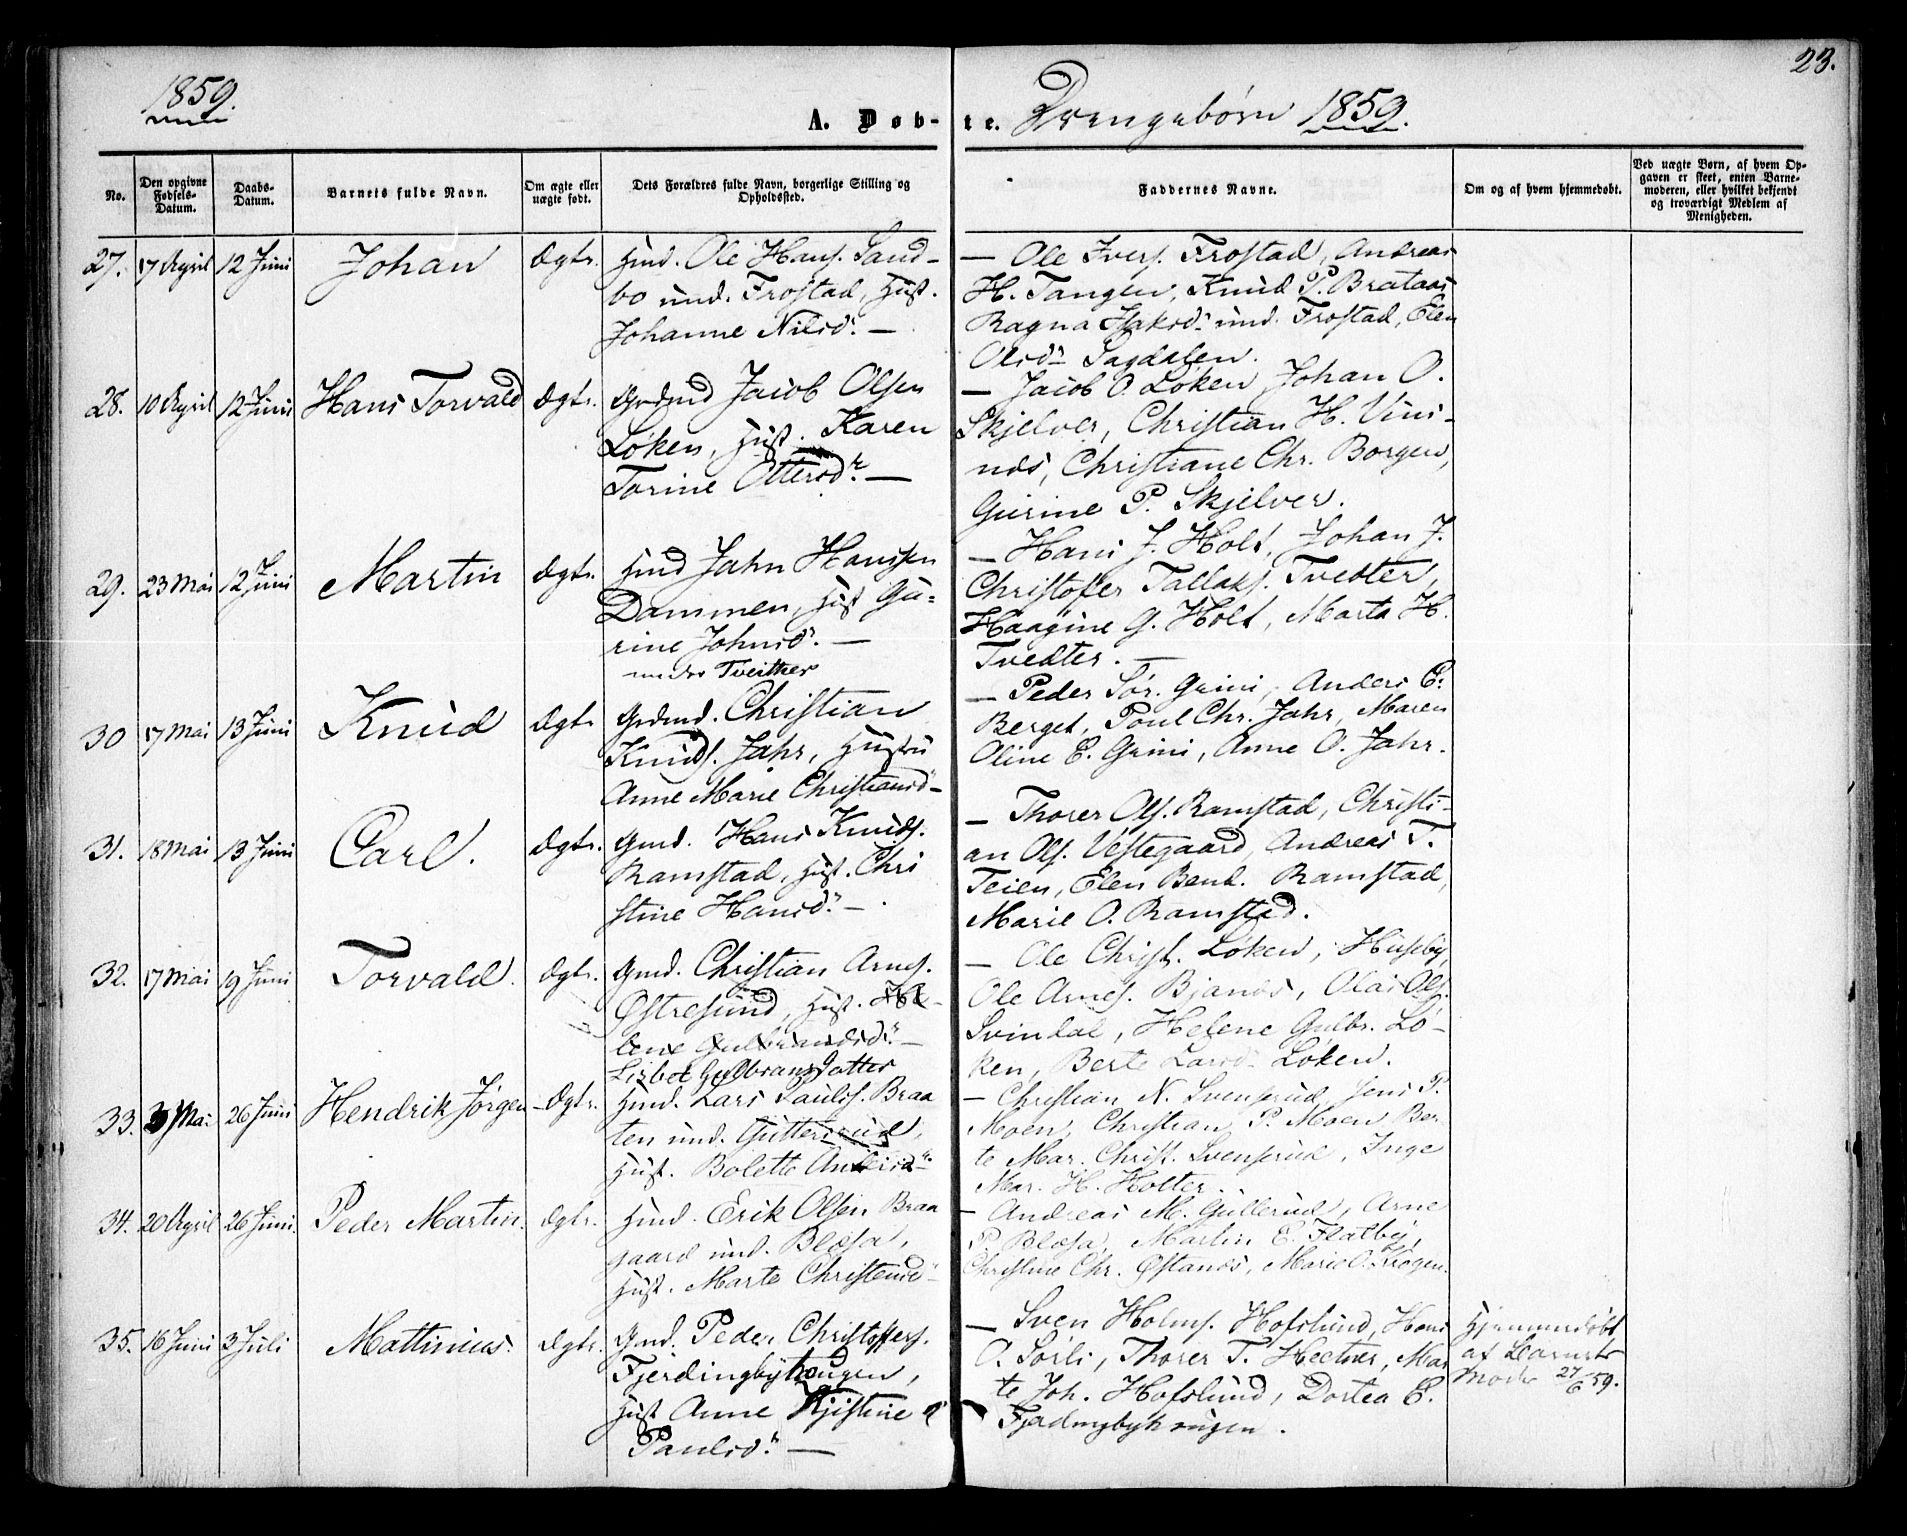 23.
1859.
A. Døb-
te. Drengebørn 1859.
No.
Den opgivne Fødsels-Datum.
Daabs-Datum.
Barnets fulde Navn.
Om ægte eller uægte født.
Dets Forældres fulde Navn, borgerlige Stilling og Opholdssted.
Faddernes Navne.
Om og af hvem hjemmedøbt.
Ved uægte Børn, af hvem Op-
gaven er skeet, enten Barne-
moderen, eller hvilket bekjendt
og troværdigt Medlem af
Menigheden.
27. 17 April 12 Juni Johan Ægte.
Hmd. Ole Hans. Sand-
bo und. Frostad, Hust.
Johanne Nilsdr. —
— Ole Ivers. Frostad, Andreas
H. Tangen, Knud P. Brataas
Ragna Haksdr. und. Frostad, Elen
Olsdr. Sagdalen.
28. 10 April 12 Juni Hans Torvald Ægte.
Grdmd Jacob Olsen
Løken, Hust. Karen
Torine Ottersdr. —
— Jacob O. Løken, Johan O.
Skjelver, Christian H. Vini-
næs, Christiane Chr. Borgen,
Gurine P. Skjelver.
29. 23 Mai 12 Juni Martin Ægte.
Hmd Jahn Hanssen
Dammen, Hust Gu-
rine Johnsdr. —
under Tveitter
— Hans J. Holt, Johan J.
Christofer Tallaks. Tvedter,
Haagine G. Holt, Marta H.
Tvedter. —
30 17 Mai 13 Juni Knud Ægte
Grdmd. Christian
Knuds. Jahr, Hustru
Anne Marie Christiansdr.
— Peder Sør. Grini, Anders E.
Berget, Poul Chr. Jahr, Maren
Oline E. Grini, Anne O. Jahr.
31. 18 Mai 13 Juni Carl. Ægte.
Gmd. Hans Knuds.
Ramstad, Hust. Chri
stine Hansdr. —
— Thorer Ols. Ramstad, Christi-
an Ols. Vestegaard, Andreas T.
Teien, Elen Bend. Ramstad,
Marie O. Ramstad.
32. 17 Mai 19 Juni Torvald. Ægte.
Gmd. Christian Arnes.
Østresund, Hust. He-
lene Gulbrandsdr. —
Lisbet Gulbransdatter
— Ole Christ. Løken, Huseby,
Ole Arnes. Bjanæs, Olai Ols.
Svindal, Helene Gulbr. Lø-
ken, Berte Larsdr. Løken.
33. 3 Mai 26 Juni Hendrik Jørgen Ægte.
Hmd. Lars Pauls. Braa
ten und. Guttersrud,
Hust. Bolette Andersdr.
— Christian N. Svenserud, Jens P.
Moen, Christian P. Moen, Ber-
te Mar. Christ. Svenserud, Inge
Mar. H. Holter.
34. 20 April 26 Juni. Peder Martin. Ægte.
Hmd. Erik Olsen Braa
gaard und. Blæsa,
Hust. Marte Christensdr.
— Andreas M. Gullerud, Arne
P. Blæsa, Martin E. Flatby,
Christine Chr. Østanæs, Marie O. Krogen.
35. 16 Juni 3 Juli Mattinius. Ægte.
Gmd. Peder Christoffers.
Fjerdingbyhaugen,
Hust Anne Kjistine
Paulsdr. —
— Sven Holms. Hofslund, Hans
O. Sørli, Thorer T. Hectner, Mar
te Joh. Hofslund, Dortea E.
Fjerdingbyhaugen.
Hjemmedøbt
af Barnets
Moder 27/6 59.